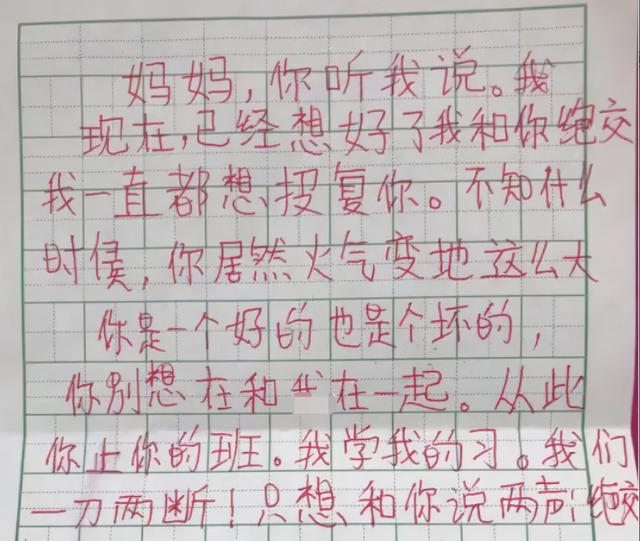 妈妈，你听我说。我
现在，已经想好了我和你绝交
我一直都想投复你。不知什么
时侯，你居然火气变地这么大
你是一个好的也是个坏的，
你别想在和我在一起。从此
你止你的班。我学我的习。我们
一刀两断！只想和你说两声：绝交